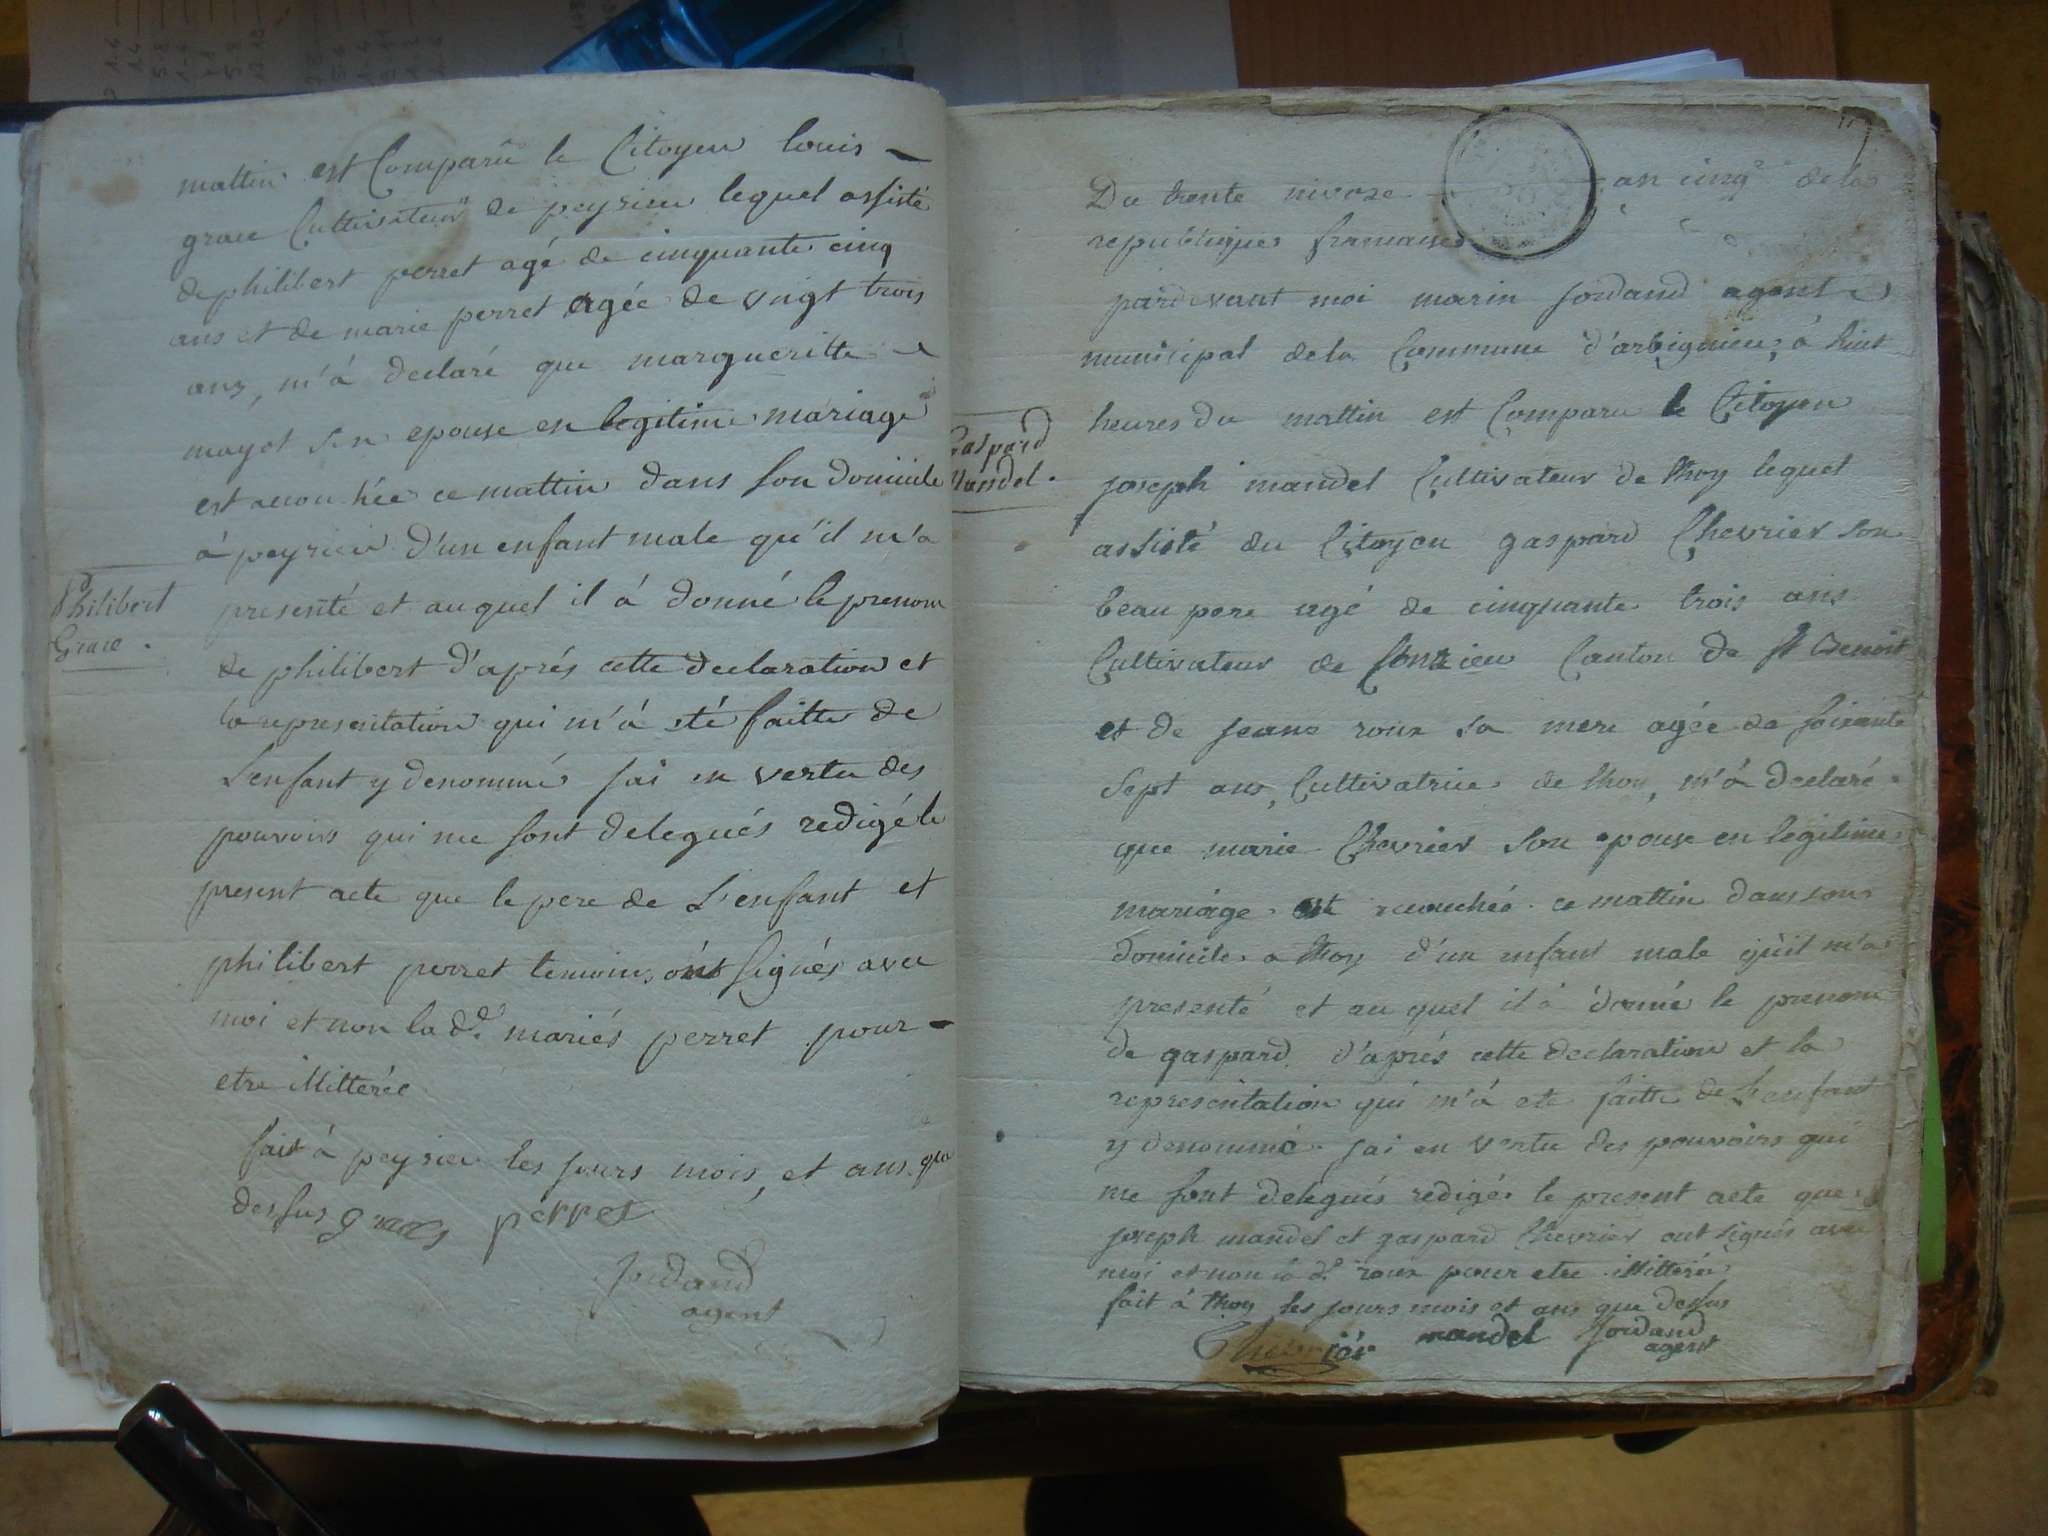 mattin est Comparu le Citoyen louis
grace Cultivateur de peyrieu lequel assisté
de philibert perret agé de cinquante cinq
ans et de marie perret agée de vingt trois
ans, m'à declaré que margueritte
mayot son epouse en legitime mariage
est accouchée ce mattin dans son domicile
à peyrieu d'un enfant male qu'il m'a
Philibert
Grace.
presenté et auquel il à donné le prenom
de philibert d'aprés cette declaration et
la representation qui m'à eté faitte de
L'enfant y denommé jai en vertu des
pouvoirs qui me sont delegués redigé le
present acte que le pere de L'enfant et
philibert perret temoins ont signés avec
moi et non la de. mariés perret pour
etre illitterée
fait à peyrieu les jours mois, et ans que
dessus perret
Jordand
agent
Du trente nivose an cinqe de la
republique francaise
pardevant moi marin Jordand agent
municipal de la Commune d'arbignieu, à huit
heures du mattin est Comparu le Citoyen
Gaspard
Mandel.
joseph mandel Cultivateur de thoy lequel
assisté du Citoyen gaspard Chevrier son
beau pere agé de cinquante trois ans
Cultivateur de Conzieu Canton de St Benoit
et de jeane roux sa mere agée de soixante
sept ans, Cultivatrice de thoy, m'à declaré
que marie Chevrier son epouse en legitime
mariage est accouchée ce mattin dans son
domicile a thoy d'un enfant male qu'il m'a
presenté et au quel il à donné le prenom
de gaspard d'aprés cette declaration et la
representation qui m'à eté faitte de L'enfant
y denommé jai en vertu des pouvoirs qui
me sont delegués redigé le present acte que
joseph mandel et gaspard Chevrier ont signés avec
moi et non la de roux pour etre illitterée
fait à thoy les jours mois et ans que dessus
Chevrier mandel Jordand
agent